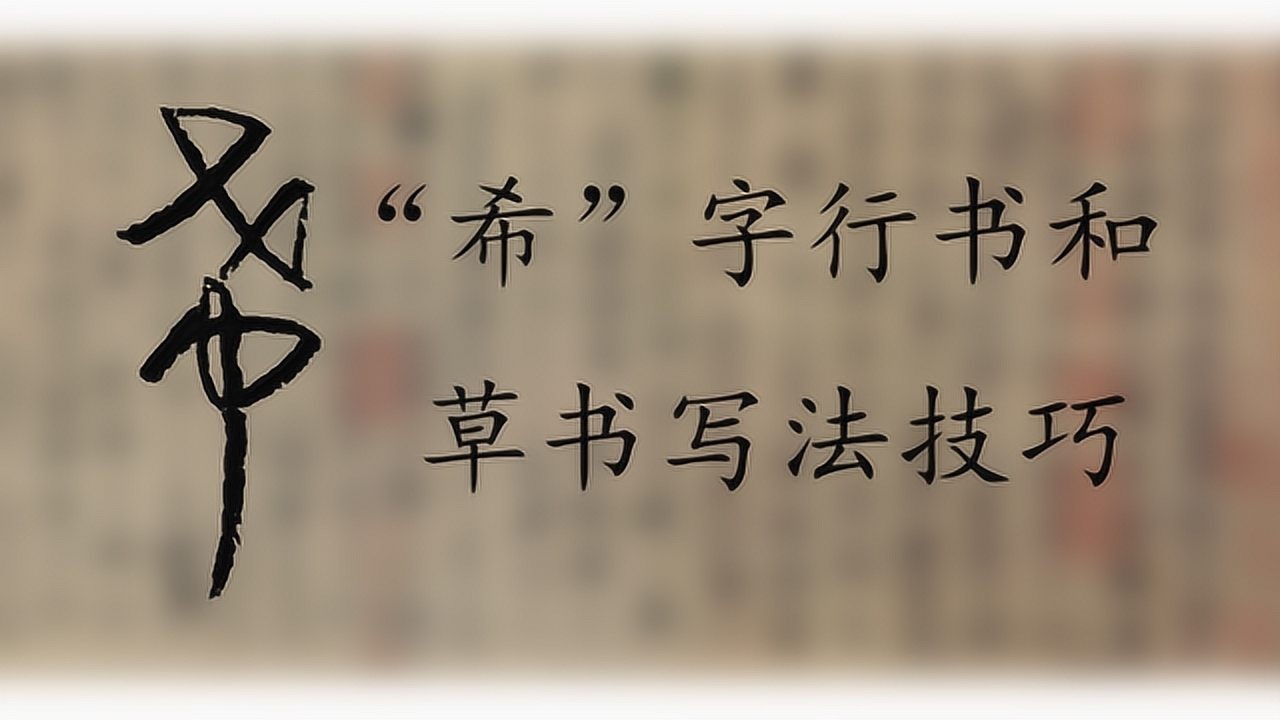 希
“希”字行书和
草书写法技巧